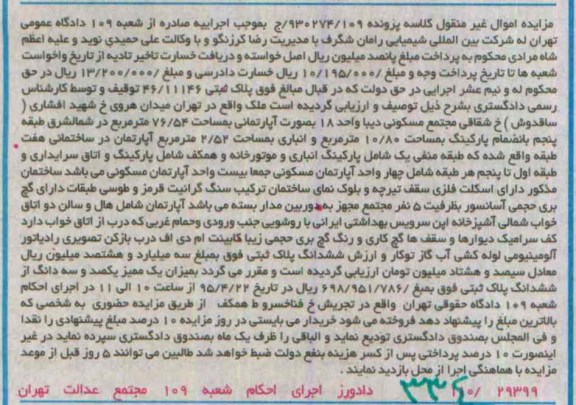 مزایده اموال غیر منقول کلاسه پرونده ۹۳۰۲۷۴/۱۰۹/ج بموجب اجراییه صادره از شعبه ۱۰۹ دادگاه عمومی
تهران له شرکت بین المللی شیمیایی رامان شگرف با مدیریت رضا کرزنگو و با وکالت علی حمیدی نوید و علیه اعظم
شاه مرادی محکوم به پرداخت مبلغ پانصد میلیون ریال اصل خواسته و دریافت خسارت تاخیر تادیه از تاریخ واخواست
شعبه ها تا تاریخ پرداخت وجه و مبلغ ۱۰/۱۹۵/۰۰۰/ ریال خسارت دادرسی و مبلغ ۱۳/۲۰۰/۰۰۰/ ریال در حق
محکوم له و نیم عشر اجرایی در حق دولت که در قبال مبالغ فوق پلاک ثبتی ۴۶/۱۱۱۴۶ توقیف و توسط کارشناس
رسمی دادگستری بشرح ذیل توصیف و ارزیابی گردیده است ملک واقع در تهران میدان هروی خ شهید افشاری (
ساقدوش ) خ شقاقی مجتمع مسکونی دیبا واحد ۱۸ بصورت آپارتمانی بمساحت ۷۶/۵۴ مترمربع در شمالشرق طبقه
پنجم بانضمام پارکینگ بمساحت ۱۰/۸۰ مترمربع و انباری بمساحت ۲/۵۲ مترمربع آپارتمان در ساختمانی هفت
طبقه واقع شده که طبقه منفی یک شامل پارکینگ انباری و موتورخانه و همکف شامل پارکینگ و اتاق سرایداری و
طبقه اول تا پنجم هر طبقه شامل چهار واحد آپارتمان مسکونی جمعا بیست واحد آپارتمان مسکونی می باشد ساختمان
مذکور دارای اسکلت فلزی سقف تیرچه و بلوک نمای ساختمان ترکیب سنگ گرانیت قرمز و طوسی طبقات دارای گچ
بری حجمی آسانسور بظرفیت ۵ نفر مجتمع مجهز به دوربین مدار بسته می باشد آپارتمان شامل هال و سالن دو اتاق
خواب شمالی آشپزخانه اپن سرویس بهداشتی ایرانی با روشویی جنب ورودی وحمام غربی که درب از اتاق خواب دارد
کف سرامیک دیوارها و سقف ها گچ کاری و رنگ گچ بری حجمی زیبا کابینت ام دی اف درب بازکن تصویری رادیاتور
آلومینیومی لوله کشی آب گاز توکار و ارزش ششدانگ پلاک ثبتی فوق بمبلغ سه میلیارد و هشتصد میلیون ریال
معادل سیصد و هشتاد میلیون تومان ارزیابی گردیده است و مقرر می گردد بمیزان یک ممیز یکصد و سه دانگ از
ششدانگ پلاک ثبتی فوق بمبغ ۶۹۸/۹۵۱/۷۸۶/ ریال در تاریخ ۹۵/۴/۲۲ از ساعت ۱۰ الی ۱۱ در اجرای احکام
شعبه ۱۰۹ دادگاه حقوقی تهران واقع در تجریش خ فناخسرو ط همکف از طریق مزایده حضوری به شخصی که
بالاترین مبلغ را پیشنهاد دهد فروخته می شود خریدار می بایستی در روز مزایده ۱۰ درصد مبلغ پیشنهادی را نقدا
و فی المجلس بصندوق دادگستری تودیع نماید و الباقی را ظرف یک ماه بصندوق دادگستری سپرده نماید در غیر
اینصورت ۱۰ درصد پرداختی پس از کسر هزینه بنفع دولت ضبط خواهد شد طالبین می توانند ۵ روز قبل از موعد
مزایده با هماهنگی اجرا از محل بازدید نمایند .
۲۹۳۹۹ دادورز اجرای احکام شعبه ۱۰۹ مجتمع عدالت تهران